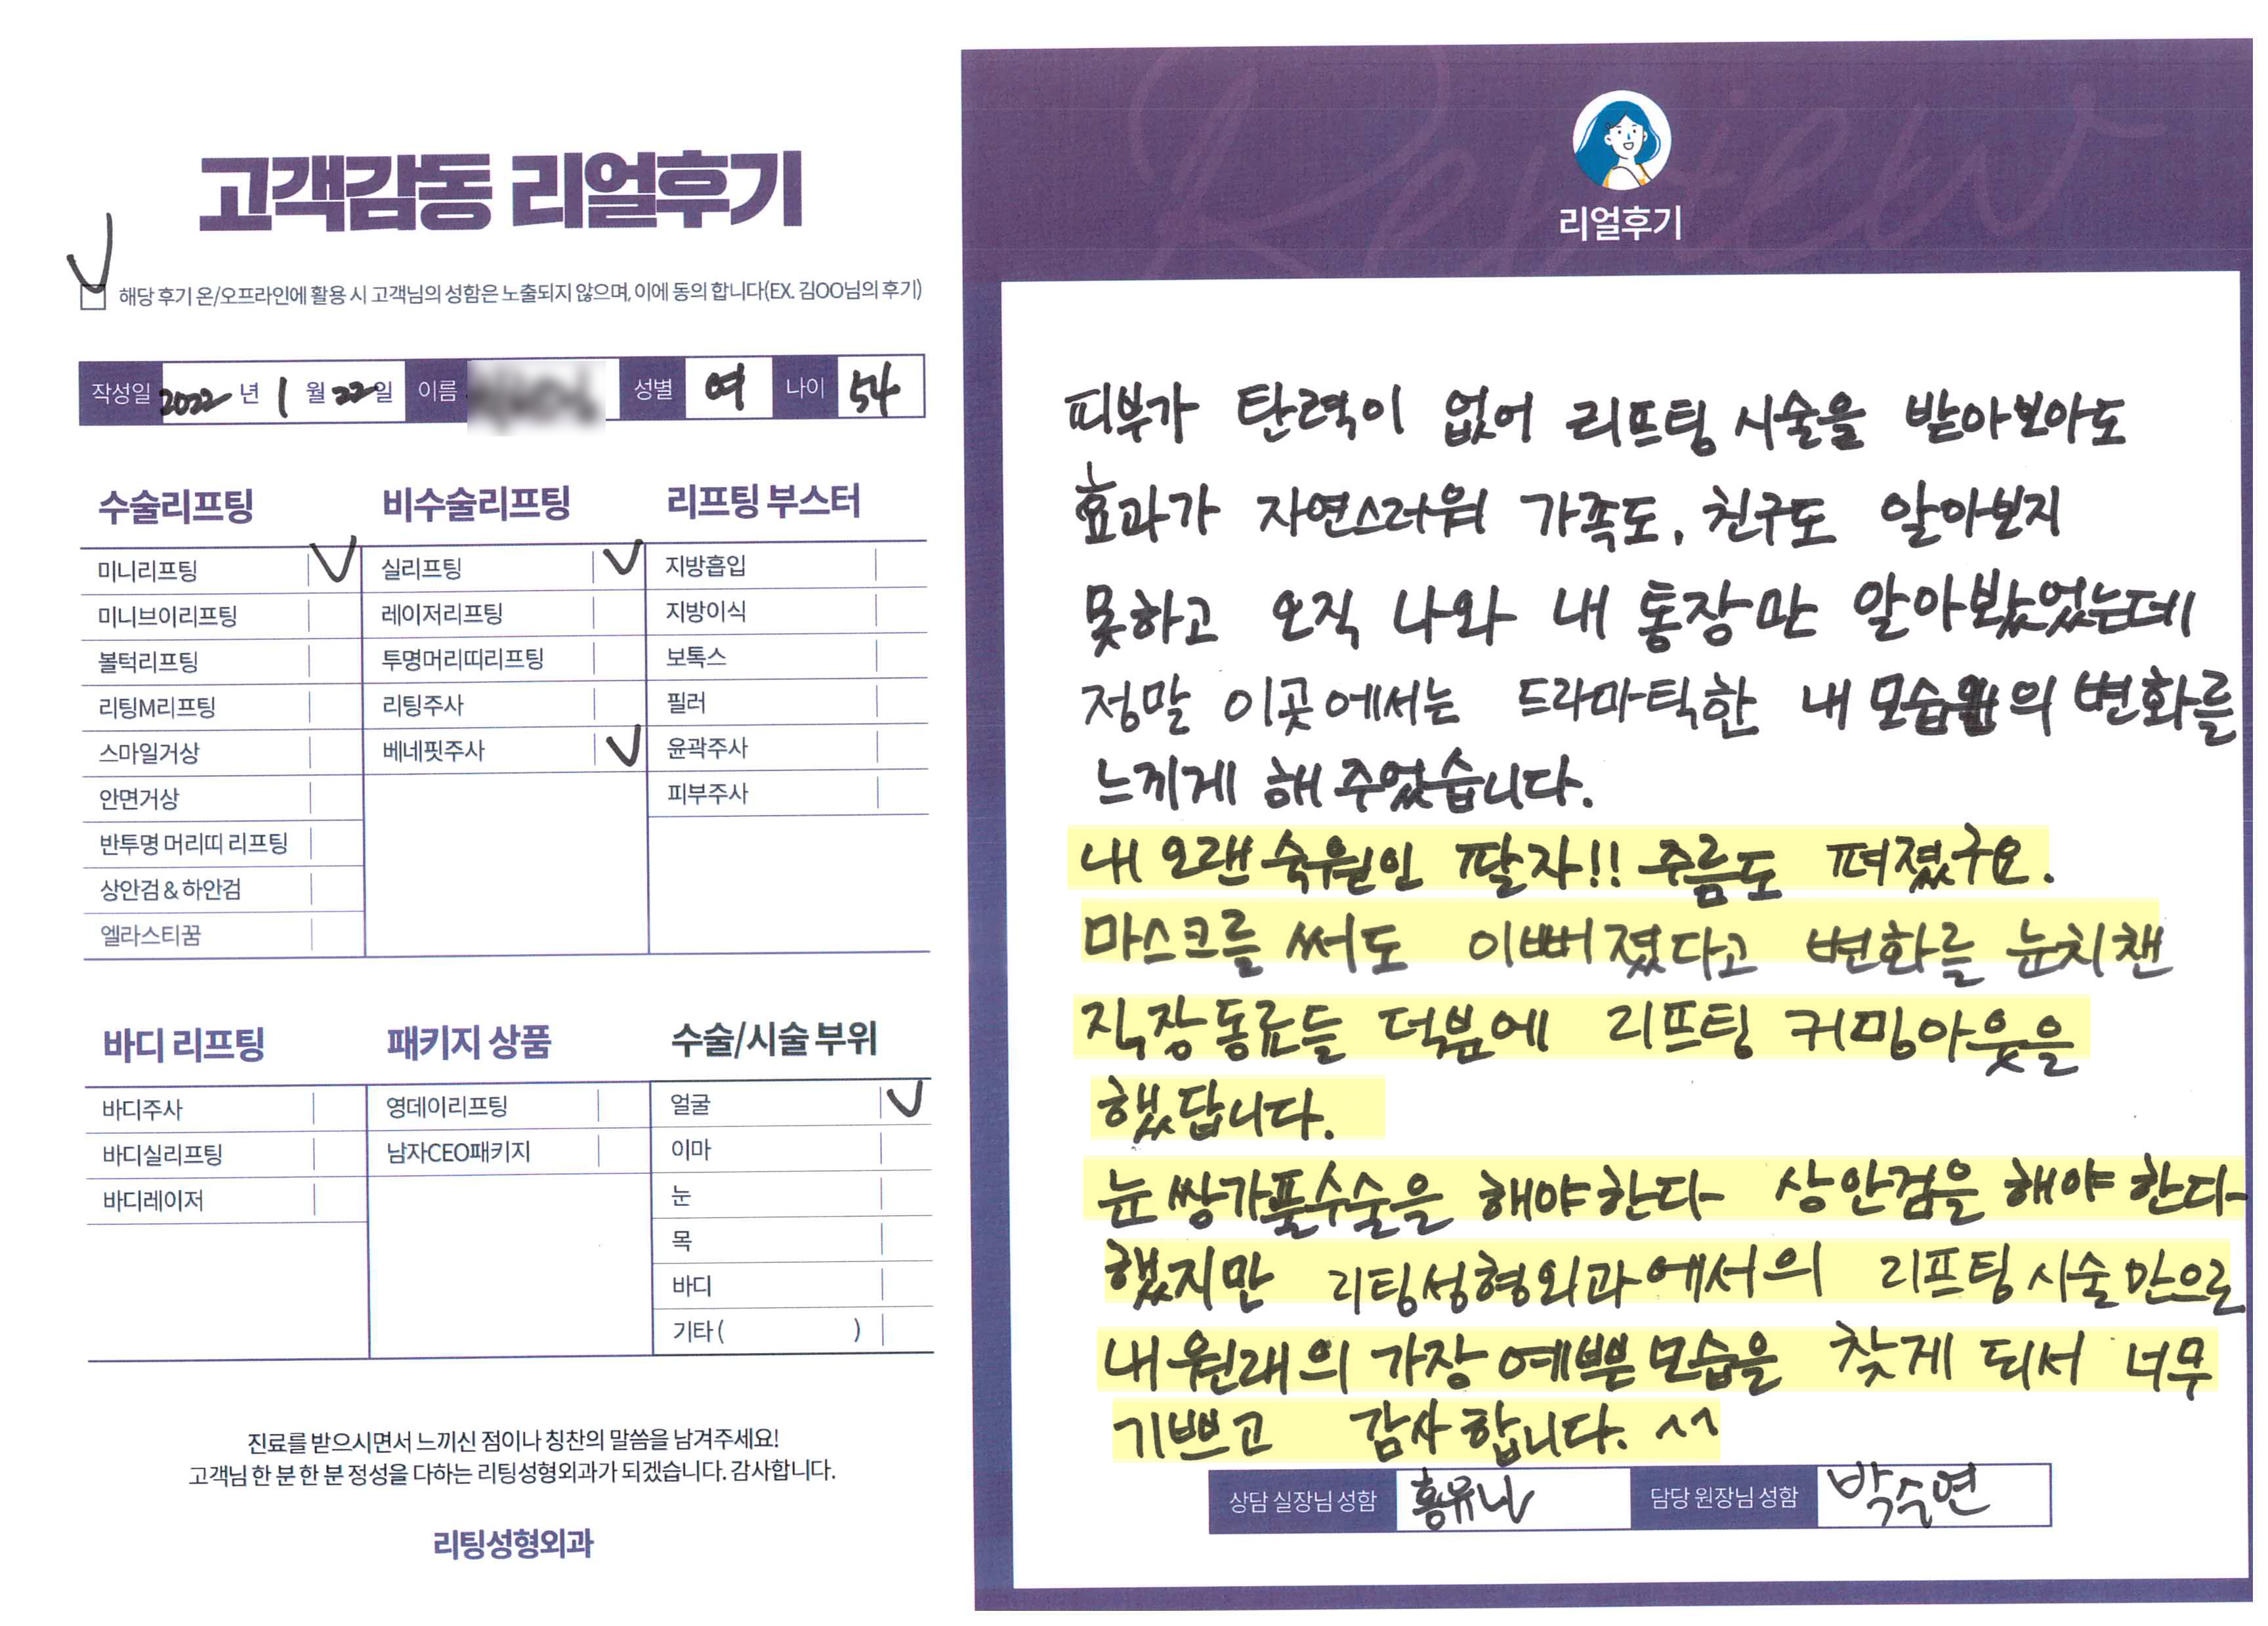 고객감동 리얼후기
해당 후기 온/오프라인에 활용 시 고객님의 성함은 노출되지 않으며, 이에 동의 합니다(EX. 김OO님의 후기)
작성일 2022년 1월 22일 이름 성별 여 나이 54
수술리프팅
미니리프팅 V
미니브이리프팅
볼턱리프팅
리팅M리프팅
스마일거상
안면거상
반투명 머리띠 리프팅
상안검 & 하안검
엘라스티꿈
비수술리프팅
실리프팅 V
레이저리프팅
투명머리띠리프팅
리팅주사
베네핏주사 V
리프팅 부스터
지방흡입
지방이식
보톡스
필러
윤곽주사
피부주사
바디 리프팅
바디주사
바디실리프팅
바디레이저
패키지 상품
영데이리프팅
남자CEO패키지
수술/시술 부위
얼굴 V
이마
눈
목
바디
기타 ( )
진료를 받으시면서 느끼신 점이나 칭찬의 말씀을 남겨주세요!
고객님 한 분 한 분 정성을 다하는 리팅성형외과가 되겠습니다. 감사합니다.
리팅성형외과
Review
리얼후기
피부가 탄력이 없어 리프팅 시술을 받아보아도
효과가 자연스러워 가족도, 친구도 알아보지
못하고 오직 나와 내 통장만 알아봤었는데
정말 이곳에서는 드라마틱한 내 모습의 변화를
느끼게 해 주었습니다.
내 오랜 숙원인 팔자!! 주름도 펴졌구요.
마스크를 써도 이뻐졌다고 변화를 눈치챈
직장동료들 덕분에 리프팅 커밍아웃을
했답니다.
눈 쌍가풀수술을 해야한다 상안검을 해야 한다
했지만 리팅성형외과에서의 리프팅 시술만으로
내 원래의 가장 예쁜 모습을 찾게 되서 너무
기쁘고 감사합니다. ^^
상담 실장님 성함 홍유나 담당 원장님 성함 박수연